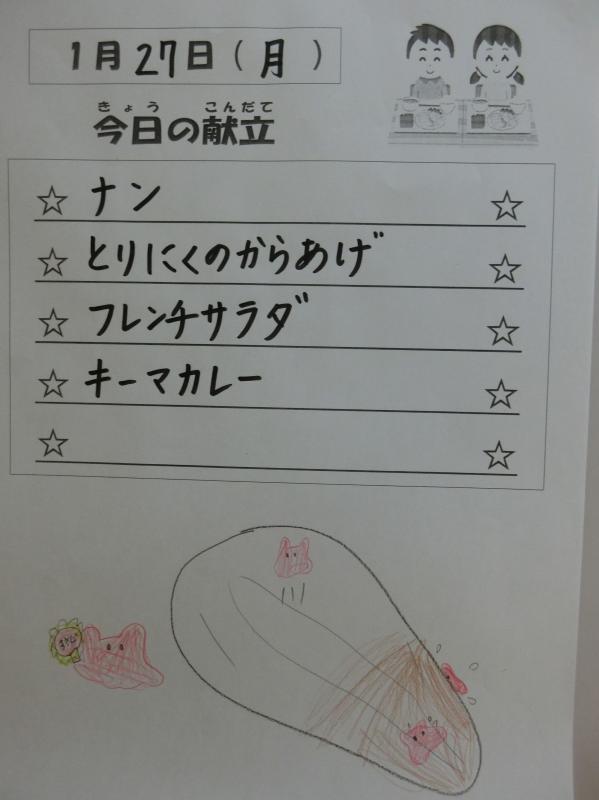 1月27日(月)
きょう こんだて
今日の献立
☆ ナン ☆
☆ とりにくのからあげ ☆
☆ フレンチサラダ ☆
☆ キーマカレー ☆
☆ ☆